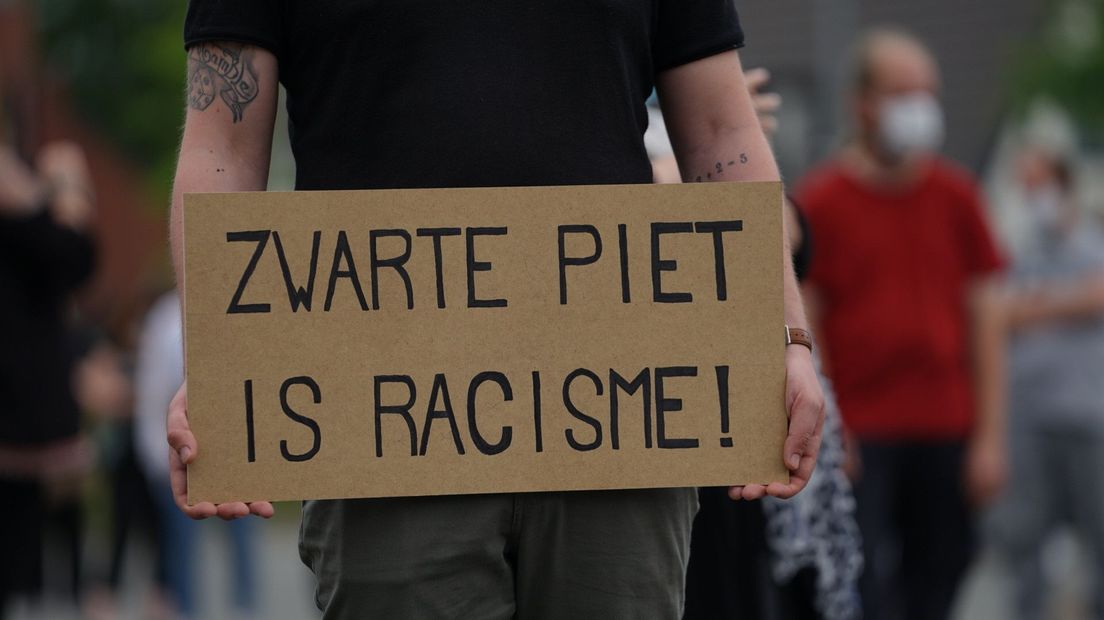 ZWARTE PIET
IS RACISME!
2+2=5